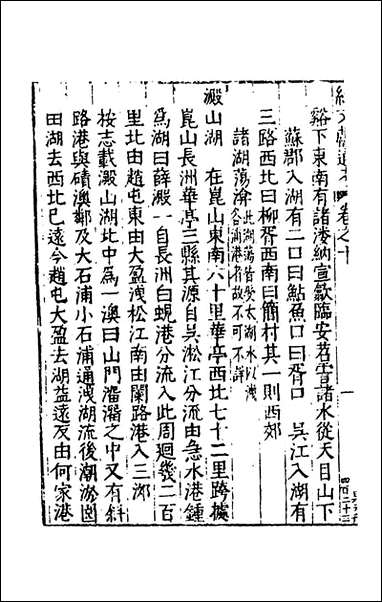 續文獻通考 卷之十
谿下東南有諸溇納宣歙臨安苕霅諸水從天目山下
蘇郡入湖有二口曰鮎魚口曰胥口 吳江入湖有
三路西北曰柳胥西南曰簡村其一則西郊
諸湖蕩瀹 此湖蕩皆受太湖水以洩
澱山湖 在崑山東南六十里華亭西北七十二里跨據
崑山長洲華亭三縣其源自吳淞江分流由急水港鍾
爲湖曰薛澱一自長洲白蜆港分流入此周迴幾二百
里北由趙屯東由大盈淺松江南由闌路港入三泖
按志載澱山湖北中爲一澳曰山門溜瀦之中又有斜
路港與磧澳鄰及大石浦小石浦通淺湖流後潮淤園
田湖去西北巳遠今趙屯大盈去湖益遠反由何家港